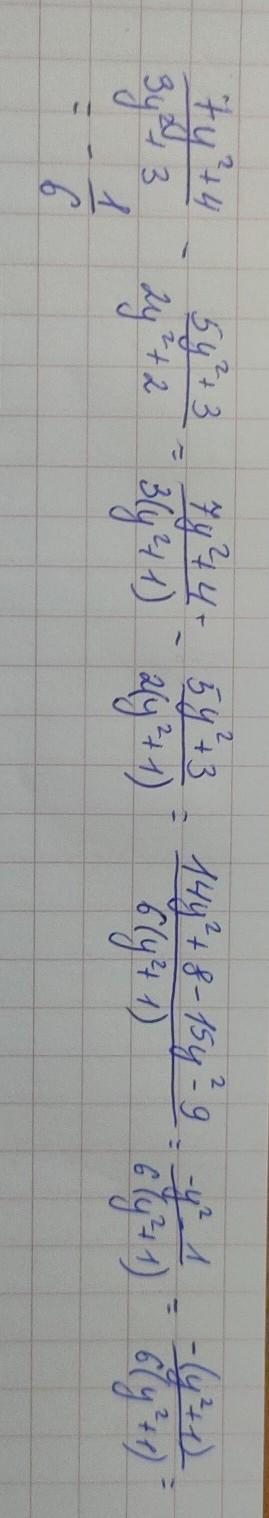 (7y²+4)/(3y²+3) - (5y²+3)/(2y²+2) = (7y²+4)/(3(y²+1)) - (5y²+3)/(2(y²+1)) = (14y²+8-15y²-9)/(6(y²+1)) = (-y²-1)/(6(y²+1)) = (-(y²+1))/(6(y²+1)) =
= - 1/6